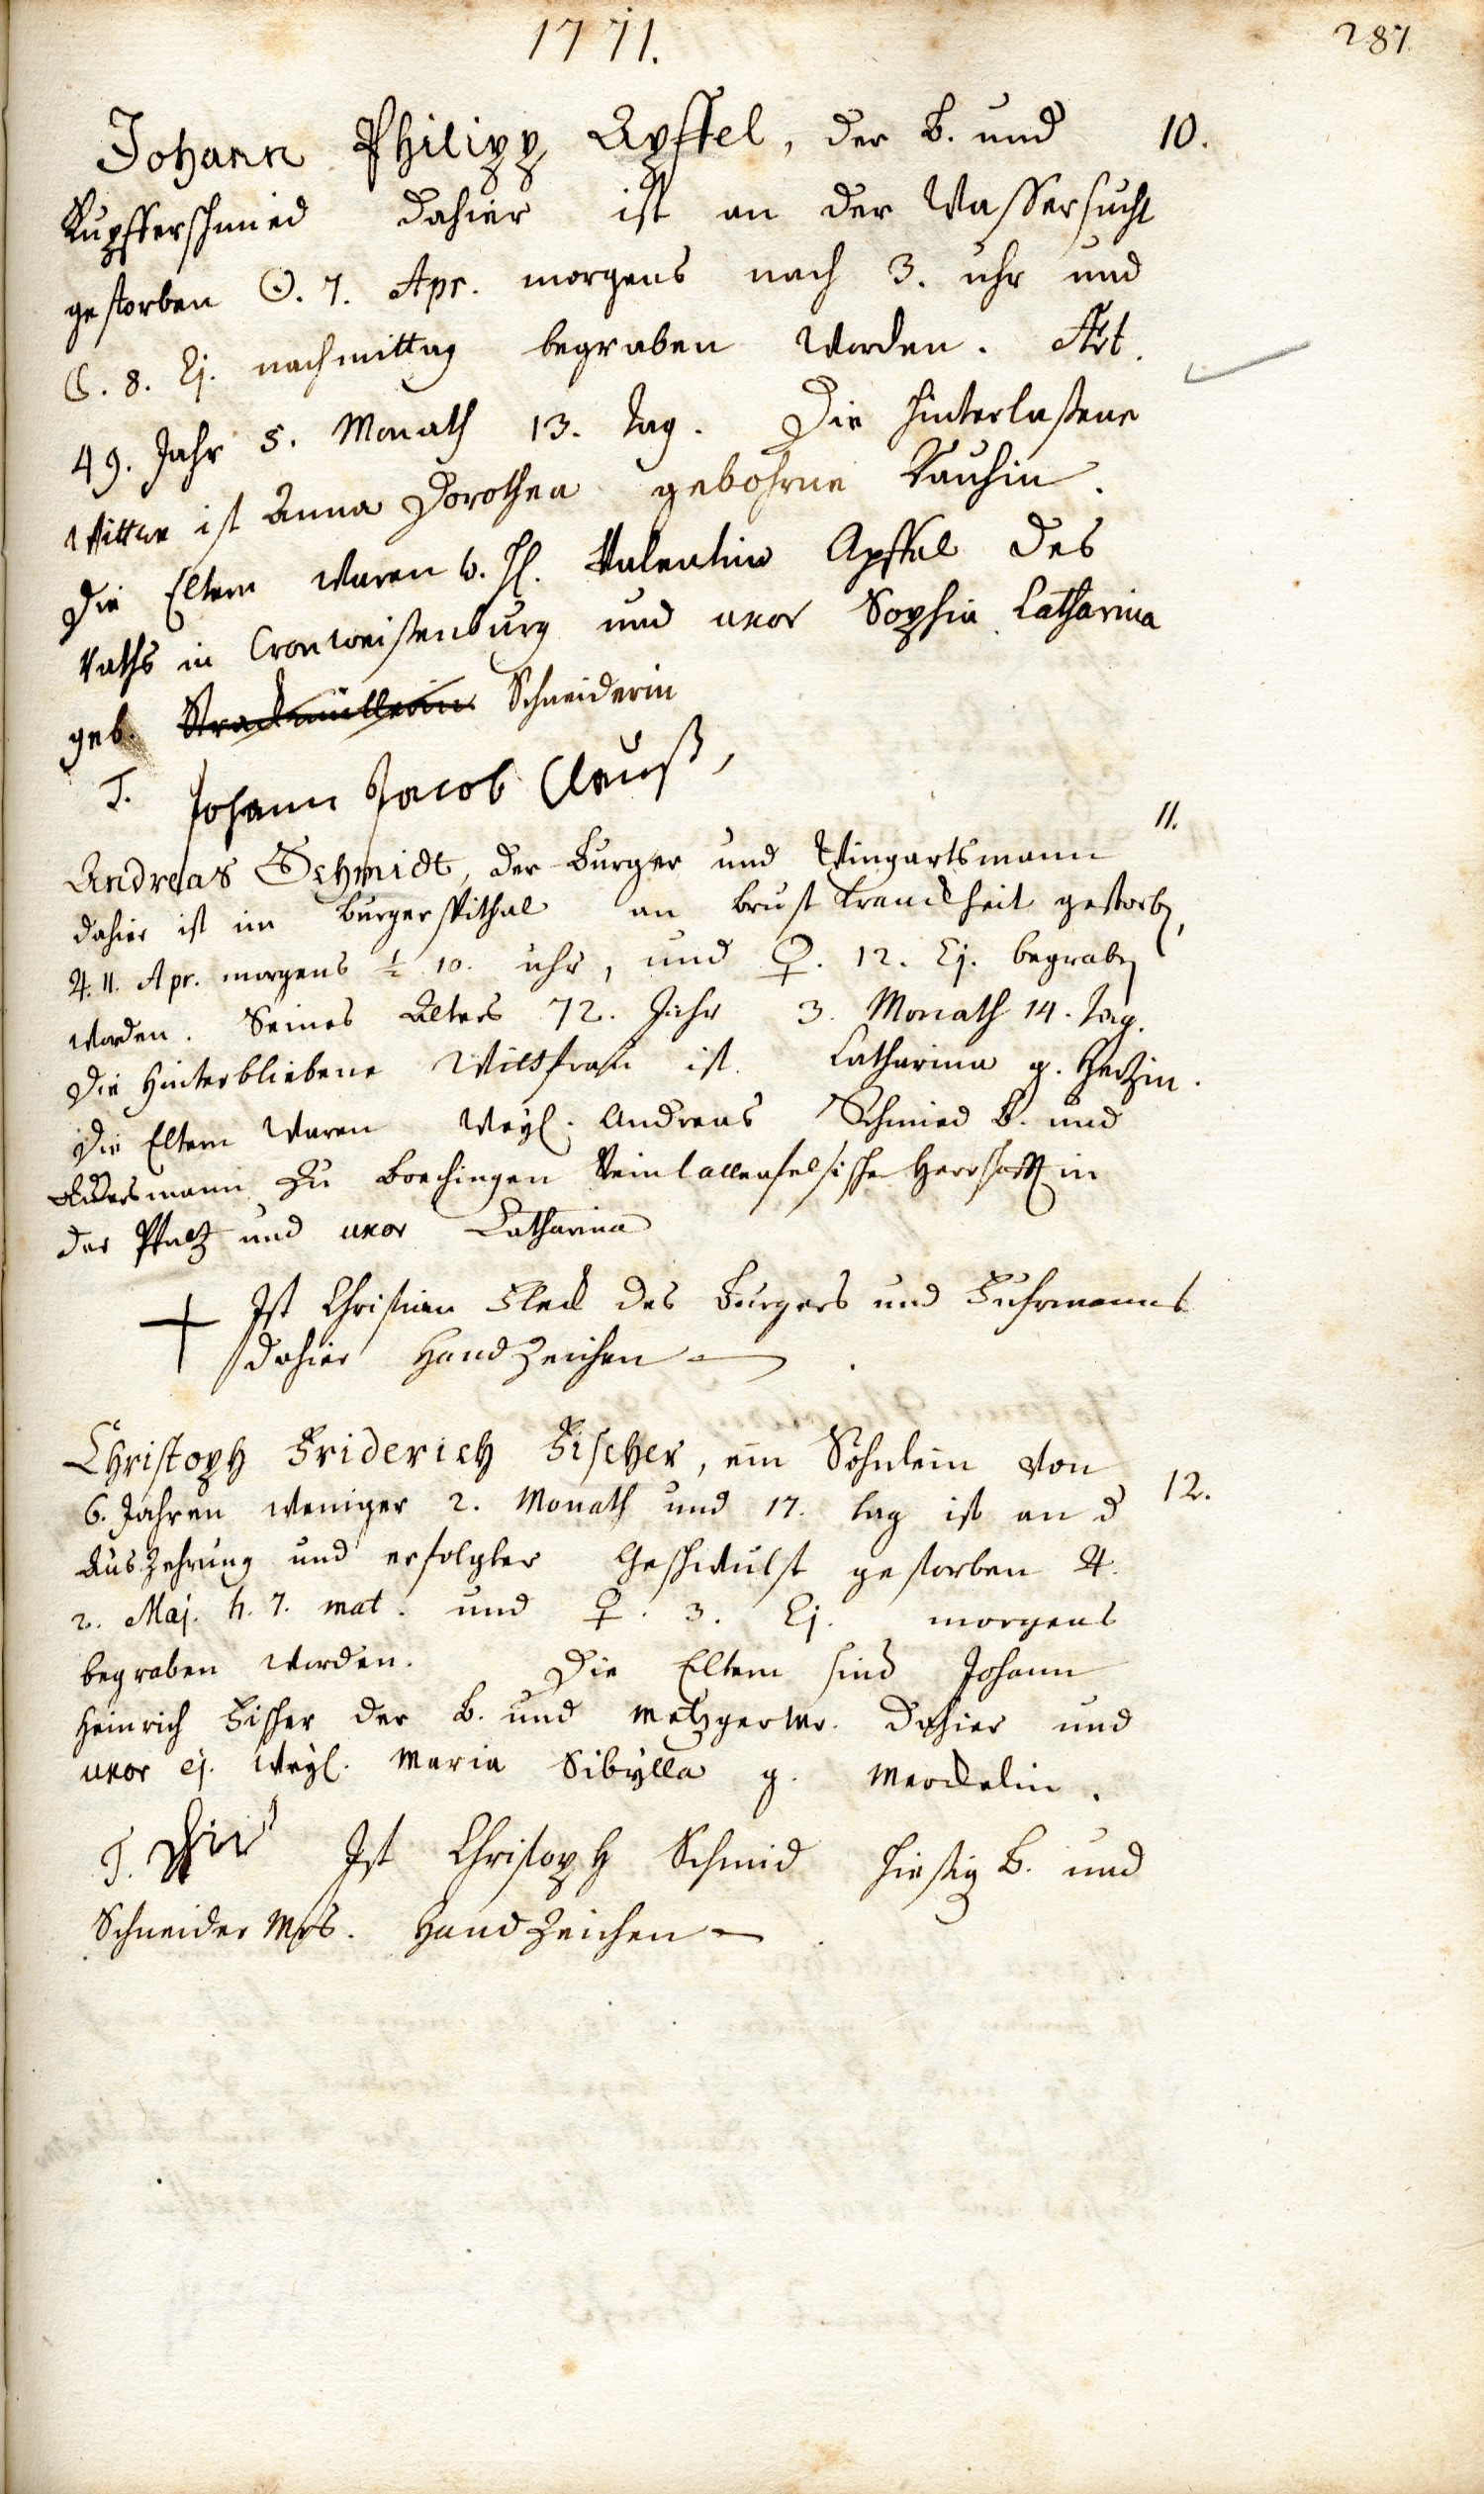 1771.
287
Johann Philipp Apffel, der B. und 10.
Kupfferschmied dahier ist an der Wassersucht
gestorben ☉. 7. Apr. morgens nach 3. uhr und
☾. 8. Ej. nachmittag begraben worden. Aet.
49. Jahr 5. Monath 13. Tag. Die hinterlaßene
Wittwe ist Anna Dorothea gebohrne Rauhin.
Die Eltern waren w. H. Valentin Apffel des
Raths in Cronweißenburg und uxor Sophia Catharina
geb. Schneiderin
T. Johann Jacob Clauß,
11.
Andreas Schmidt, der Burger und Wingartsmann
dahier ist im Burgerspithal an Brust Kranckheit gestorb,
♃. 11. Apr. morgens ½ 10. uhr, und ♀. 12. Ej. begrab
worden. Seines Alters 72. Jahr 3. Monath 14. Tag.
Die Hinterbliebene Wittfrau ist Catharina g.
Die Eltern waren Weyl. Andreas Schmied B. und
Ackersmann zu Boechingen Herrschafft in
der Pfaltz und uxor Catharina
Ist Christian Fleck des Burgers und Fuhrmanns
dahier Handzeichen
Christoph Friderich Fischer, ein Söhnlein von
6. Jahren weniger 2. Monath und 17. Tag ist an d 12.
Auszehrung und erfolgter Geschwulst gestorben ♃.
2. Maj. h. 7. mat. und ♀. 3. Ej. morgens
begraben worden. Die Eltern sind Johann
Heinrich Fischer der B. und Metzgermr. dahier und
uxor ej. Weyl. Maria Sibylla g. Merckelin.
T. Ist Christoph Schmid hiesig B. und
Schneider Mrs. Handzeichen